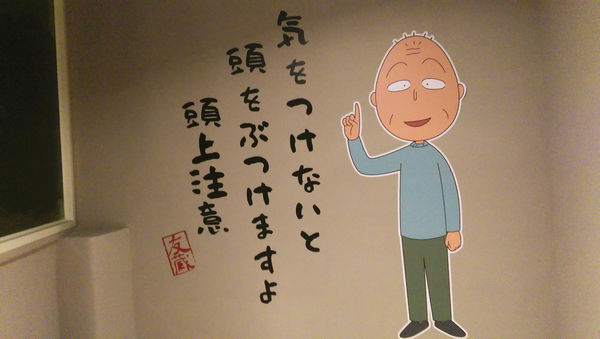 気をつけないと
頭をぶつけますよ
頭上注意
友蔵